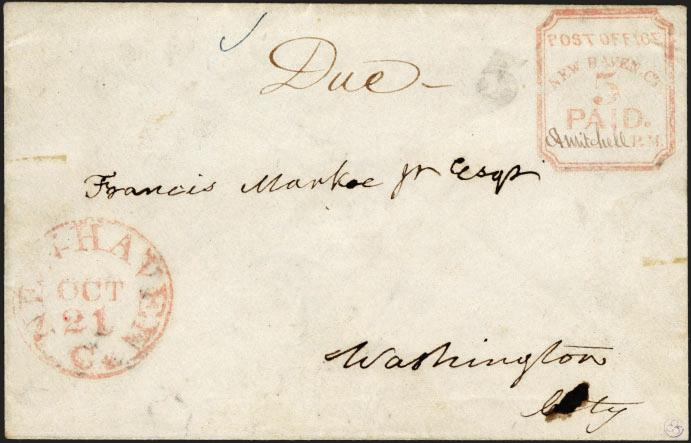 Due
5
POST OFFICE
NEW HAVEN, Ct.
5
PAID.
E A Mitchell P. M.
Francis Markoe Jr Esqr
NEW-HAVEN
OCT
21
Ct.
Washington
City